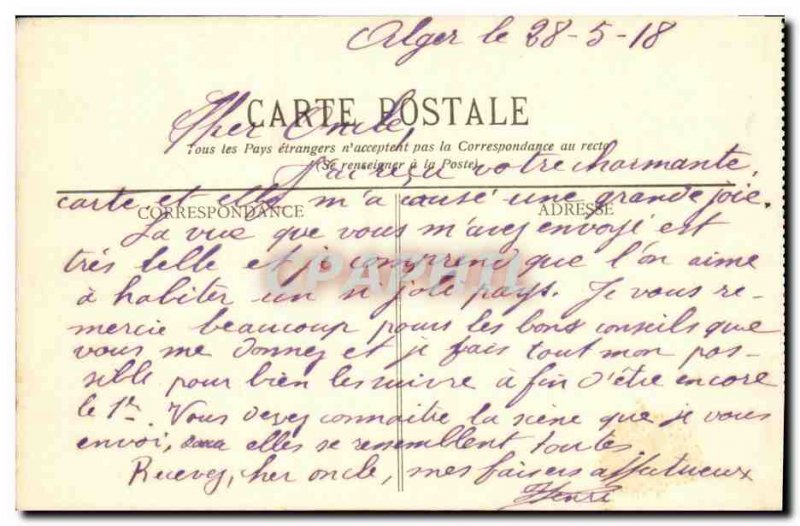 Alger le 28-5-18
CARTE POSTALE
Cher Oncle,
Tous les Pays étrangers n'acceptent pas la Correspondance au recto
(Se renseigner à la Poste)
J'ai reçu votre charmante
carte, et elle m'a causé une grande joie.
CORRESPONDANCE
ADRESSE
La vue que vous m'avez envoyé est
très belle et je comprend que l'on aime
CPAPHIL
à habiter un si joli pays. Je vous re-
mercie beaucoup pour les bons conseils que
vous me donnez et je fais tout mon pos-
sible pour bien les suivre à fin d'être encore
le 1er. Vous devez connaitre la scène que je vous
envoi, elles se ressemblent toutes
Recevez, cher oncle, mes baisers affectueux
Henri